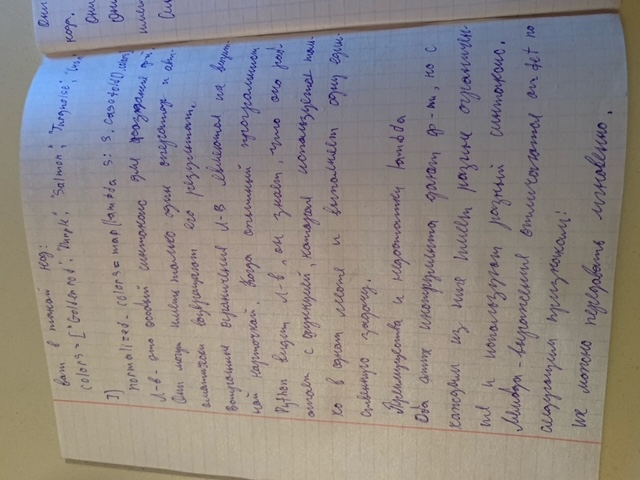 вать в такой код:
colors = ["Goldenrod", "Purple", "Salmon", "Turquoise", "Cyan"
I)
normalized_colors = map(lambda s: s.casefold(), colors
Л-в - это особый синтаксис для создания ф-й.
Они могут иметь только один оператор и авт-
оматически возвращают его результат.
ограничения Л-в являются их визит-
ной карточкой. Когда опытный программист
Python видит л-в, он знает, что она раб-
отает с функцией, которая используется толь-
ко в одном месте и выполняет одну един-
ственную задачу.
Преимущества и недостатки lambda
Оба этих инструмента дают ф-ии, но с
каждым из них имеет разные ограничен-
ие и используют разный синтаксис.
Лямбда-выражения отличаются от def по
следующим признакам:
их можно передавать мгновенно.
Они
кода.
Они
Они
имен